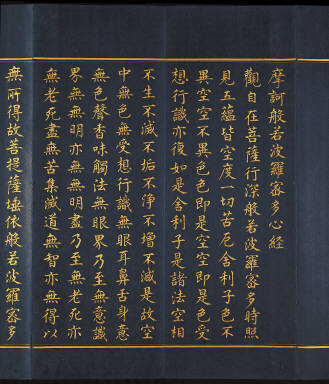 摩訶般若波羅蜜多心經
觀自在菩薩行深般若波羅蜜多時照
見五蘊皆空度一切苦厄舍利子色不
異空空不異色色即是空空即是色受
想行識亦復如是舍利子是諸法空相
不生不滅不垢不淨不增不減是故空
中無色無受想行識無眼耳鼻舌身意
無色聲香味觸法無眼界乃至無意識
界無無明亦無無明盡乃至無老死亦
無老死盡無苦集滅道無智亦無得以
無所得故菩提薩埵依般若波羅蜜多